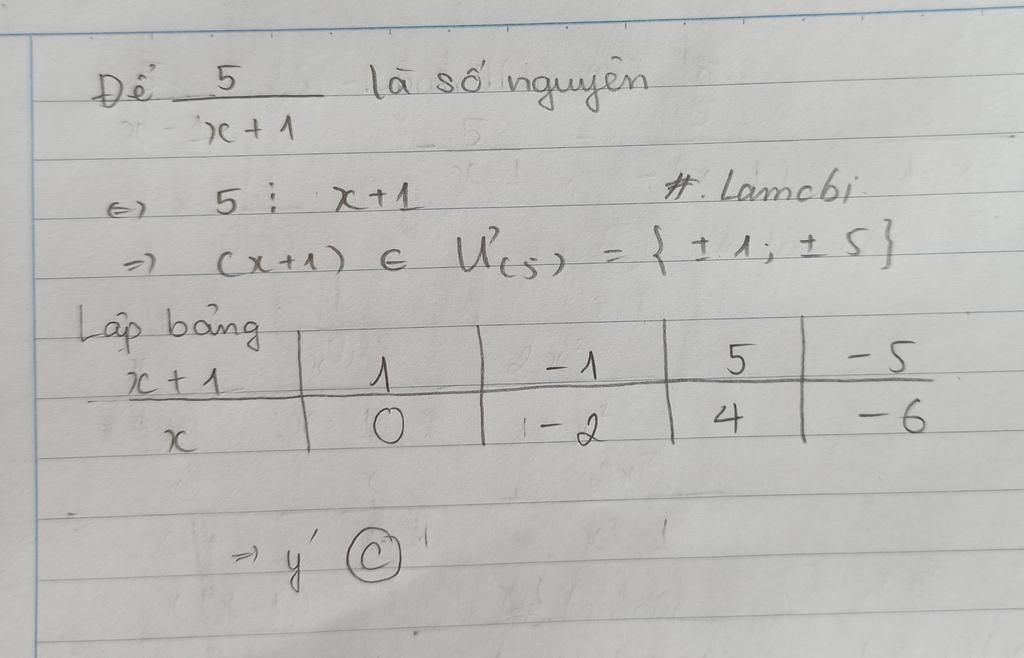 Để 5/(x+1) là số nguyên
⇔ 5 ⋮ x+1 #.Lamcbi
⇒ (x+1) ∈ Ư(5) = {±1; ±5}
Lập bảng
x+1 1 -1 5 -5
x 0 -2 4 -6
⇒ ý C